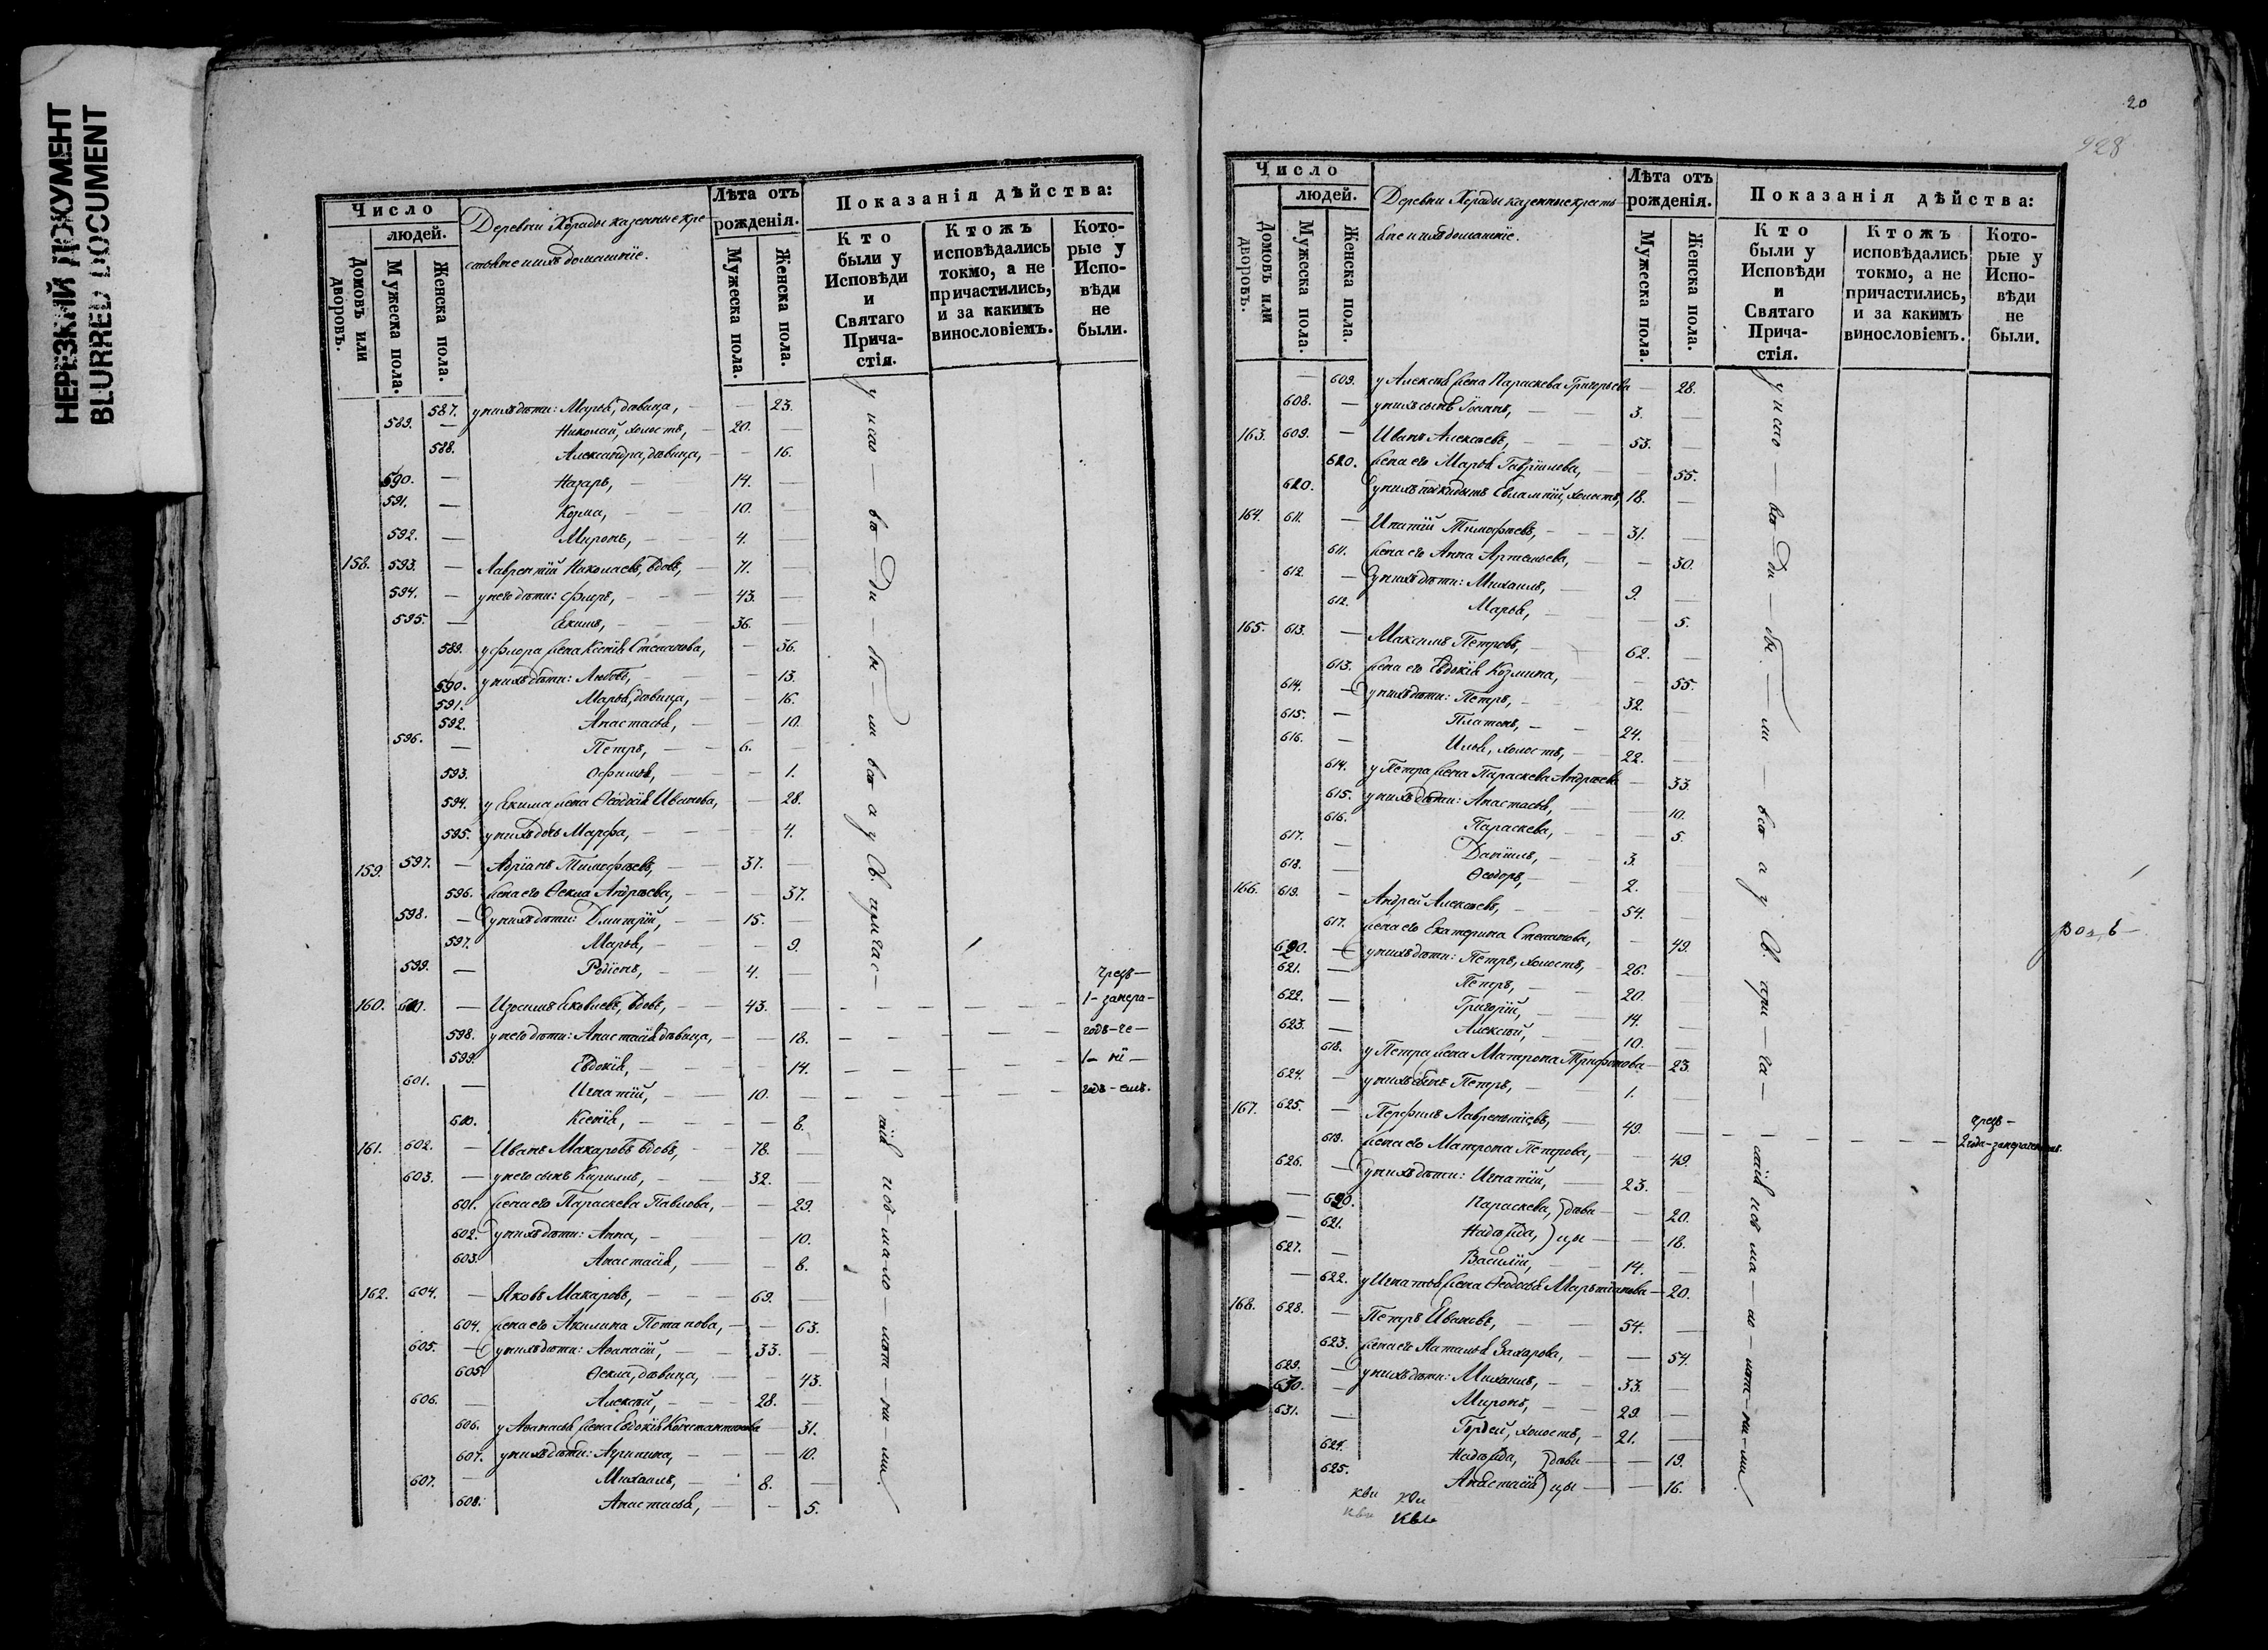 НЕРЕЗКИЙ ДОКУМЕНТ
BLURRED DOCUMENT
Число
людей.
Домовъ или дворовъ.
Мужеска пола.
Женска пола.
Деревни Хорады казенные кре-
стьяне и ихъ домашніе.
Лѣта отъ
рожденія.
Мужеска пола.
Женска пола.
Показанія дѣйства:
Кто были у Исповѣди и Святаго Прича-стія.
Ктожъ исповѣдались токмо, а не причастились, и за какимъ винословіемъ.
Кото-рые у Испо-вѣди не были.
587. у нихъ дѣти: Марья, дѣвица, — — 23.
589. — Николай, холостъ, — 20. —
588. Александра, дѣвица, — — 16.
590. — Назаръ, — 14. —
591. — Козма, — — 10. —
592. — Миронъ, — — 4. —
158. 593. — Лаврентій Николаевъ, вдовъ, — 71. —
594. — у него дѣти: Флоръ, — — 43. —
595. — Екимъ, — — 36. —
589. у Флора жена Ксенія Степанова, — 36.
590. у нихъ дѣти: Любовь, — — 13.
591. Марья, дѣвица, — — 16.
592. Анастасья, — — 10.
596. — Петръ, — — 6. —
593. Офимья, — — 1.
594. у Екима жена Ѳеодосія Иванова, — 28.
595. у нихъ дочь Марфа, — — 4.
159. 597. — Адріанъ Тимофѣевъ, — — 37. —
596. жена его Ѳекла Андрѣева, — — 37.
598. — у нихъ дѣти: Дмитрій, — 15. —
597. Марья, — — 9.
599. — Родіонъ, — 4. —
160. 600. — Изосимъ Яковлевъ, вдовъ, — 43. —
598. у него дѣти: Анастасія дѣвица, — 18.
599. Евдокія, — — 14.
601. — Игнатій, — — 10. —
600. Ксенія, — — 8.
161. 602. — Иванъ Макаровъ вдовъ, — 78. —
603. — у него сынъ Кириллъ, — 32. —
601. жена его Параскева Павлова, — — 29.
602. у нихъ дѣти: Анна, — — 10.
603. Анастасія, — — 8.
162. 604. — Яковъ Макаровъ, — — 69. —
604. жена его Акилина Потапова, — — 63.
605. — у нихъ дѣти: Аѳанасій, — 33. —
605. Ѳекла, дѣвица, — — 43.
606. — Алексѣй, — — 28. —
606. у Аѳанасья жена Евдокія Константинова — 31.
607. у нихъ дѣти: Агрипина, — — 10.
607. — Михаилъ, — 8. —
608. Анастасья, — — 5.
у испо — вѣ — ди — бы — ли всѣ а у Св. причас —
тія мало — лѣт — ни — ми.
чрезъ —
1 —
годъ —
1 —
годъ —
20
928
Число
людей.
Домовъ или дворовъ.
Мужеска пола.
Женска пола.
Деревни Хорады казенные кресть-
яне и ихъ домашніе.
Лѣта отъ
рожденія.
Мужеска пола.
Женска пола.
Показанія дѣйства:
Кто были у Исповѣди и Святаго Прича-стія.
Ктожъ исповѣдались токмо, а не причастились, и за какимъ винословіемъ.
Кото-рые у Испо-вѣди не были.
— 609. у Алексѣя жена Параскева Григорьева — 28.
608. — у нихъ сынъ Іоаннъ, — — 3. —
163. 609. — Иванъ Алексѣевъ, — — 53. —
610. жена его Марья Гавріилова, — — 55.
610. у нихъ Евлампій, холостъ, 18. —
164. 611. — Ипатій Тимофѣевъ, — — 31. —
611. жена его Анна Артемьева, — — 30.
612. — у нихъ дѣти: Михаилъ, — 9. —
612. Марья, — — 5.
165. 613. — Максимъ Петровъ, — — 62. —
613. жена его Евдокія Козмина, — — 55.
614. — у нихъ дѣти: Петръ, — 32. —
615. — Платонъ, — 24. —
616. — Илья, холостъ, — 22. —
614. у Петра жена Параскева Андрѣева — 33.
615. у нихъ дѣти: Анастасья, — — 10.
616. Параскева, — — 5.
617. — Даніилъ, — 3. —
618. — Ѳеодоръ, — 2. —
166. 619. — Андрей Алексѣевъ, — — 54. —
617. жена его Екатерина Степанова, — 49.
620. — у нихъ дѣти: Петръ, холостъ, — 26. —
621. — Петръ, — 20. —
622. — Григорій, — 14. —
623. — Алексѣй, — 10. —
618. у Петра жена Матрона Трифонова — 23.
624. — у нихъ сынъ Петръ, — 1. —
167. 625. — Перфилъ Лаврентіевъ, — 49. —
619. жена его Матрона Петрова, — — 49.
626. — у нихъ дѣти: Игнатій, — 23. —
— 620. Параскева, } дѣви — — 20.
— 621. Надежда, } цы — — 18.
627. — Василій, — 14. —
— 622. у Игнатья жена Ѳеодосья — 20.
168. 628. — Петръ Ивановъ, — — 54. —
623. жена его Наталья Захарова, — — 54.
629. — у нихъ дѣти: Михаилъ, — 33. —
630. — Миронъ, — 29. —
631. — Гордѣй, холостъ, — 21. —
624. Надежда, } дѣви — — 19.
625. Анастасія } цы — — 16.
у испо — вѣ — ди — бы — ли — всѣ а у Св. при — ча —
стія ма — ло — лѣт — ни — ми.
чрезъ —
2 года —